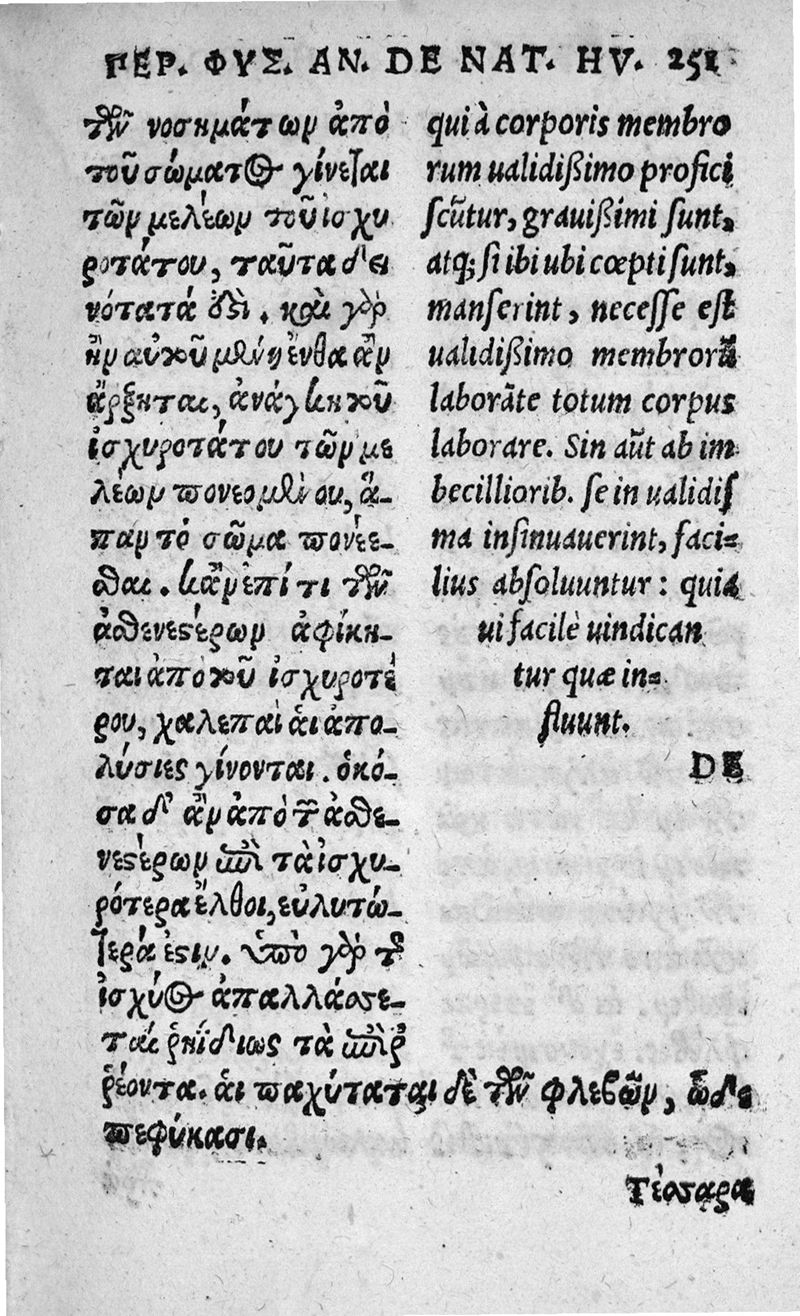 ΠΕΡ. ΦΥΣ. ΑΝ. DE NAT. HV. 251
τῶν νοσημάτων ἀπὸ
τοῦ σώματος γίνεται
τῶν μελέων τοῦ ἰσχυ
ροτάτου, ταῦτα δει
νότατά ἐστι. καὶ γὰρ
ἢν αὐτοῦ μένῃ ἔνθα ἂν
ἄρξηται, ἀνάγκη τοῦ
ἰσχυροτάτου τῶν με
λέων πονεομένου, ἅ-
παν τὸ σῶμα πονέε-
σθαι. κἂν ἐπί τι τῶν
ἀσθενεστέρων ἀφίκη-
ται ἀπὸ τοῦ ἰσχυροτέ
ρου, χαλεπαὶ ἁι ἀπο-
λύσιες γίνονται. ὁκό-
σα δ' ἂν ἀπὸ τῶν ἀσθε-
νεστέρων ἐπὶ τὰ ἰσχυ-
ρότερα ἔλθοι, εὐλυτώ-
τερά ἐστιν. ὑπὸ γὰρ τῆς
ἰσχύος ἀπαλλάσσε-
ται ῥηϊδίως τὰ ἐπιρ
ῥέοντα. ἁι παχύταται δὲ τῶν φλεβῶν, ὧδε
πεφύκασι.
Τέσσαρα
qui à corporis membro
rum ualidißimo profici
scũtur, grauißimi sunt,
atq; si ibi ubi cœpti sunt,
manserint, necesse est
ualidißimo membrorũ
laborãte totum corpus
laborare. Sin aũt ab im
becilliorib. se in ualidis
ma insinuauerint, faci-
lius absoluuntur: quia
ui facilè uindican
tur quæ in-
fluunt.
DE